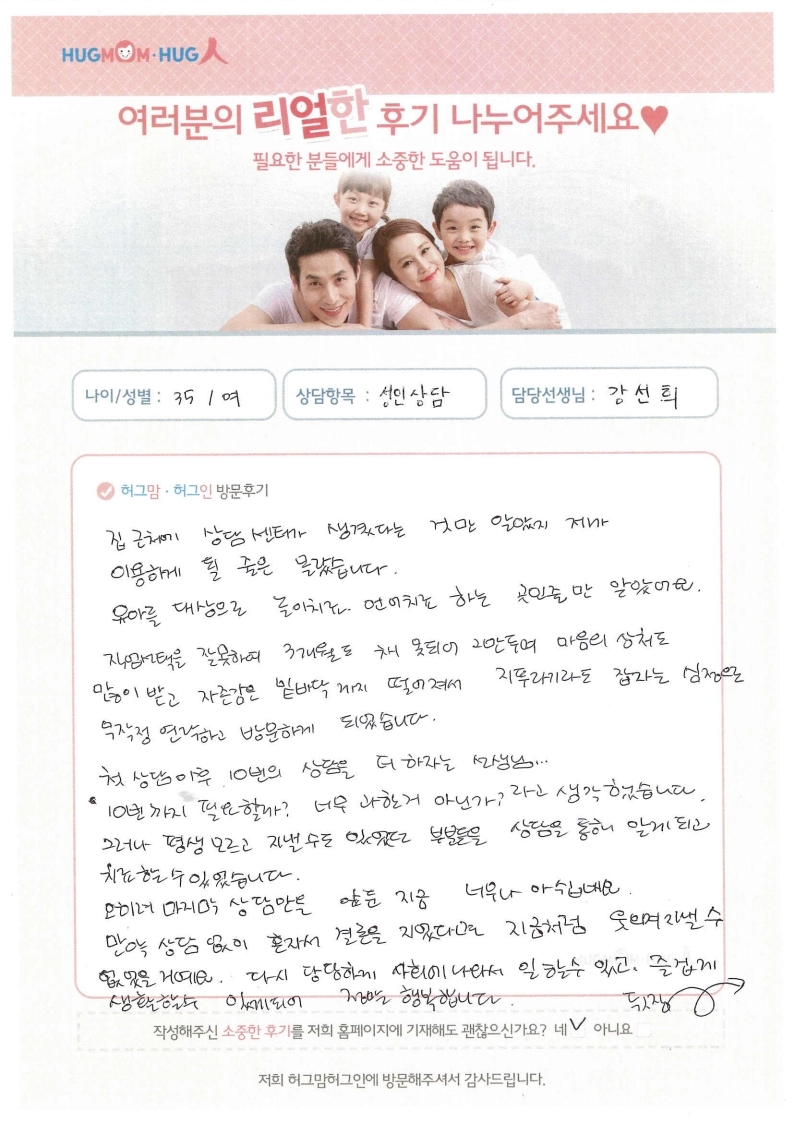 HUGMOM·HUG人
여러분의 리얼한 후기 나누어주세요♥
필요한 분들에게 소중한 도움이 됩니다.
나이/성별 : 35 / 여
상담항목 : 성인상담
담당선생님 : 강선희
허그맘 · 허그인 방문후기
집 근처에 상담센터가 생겼다는 것만 알았지 제가
이용하게 될 줄은 몰랐습니다.
유아를 대상으로 놀이치료. 언어치료 하는 곳인줄만 알았어요.
직업선택을 잘못하여 3개월도 채 못되어 그만두며 마음의 상처도
많이 받고 자존감은 밑바닥까지 떨어져서 지푸라기라도 잡자는 심정으로
무작정 연락하고 방문하게 되었습니다.
첫 상담이후 10번의 상담을 더 하자는 선생님...
10번까지 필요할까? 너무 과한거 아닌가? 라고 생각했습니다.
그러나 평생 모르고 지낼수도 있었던 부분들을 상담을 통해 알게되고
치료할수있었습니다.
오히려 마지막 상담만을 앞둔 지금 너무나 아쉽네요.
만약 상담 없이 혼자서 결론을 지었다면 지금처럼 웃으며 지낼 수
없었을거예요. 다시 당당하게 사회에 나와서 일할수있고. 즐겁게
생활할수 있게되어 정말 행복합니다.
작성해주신 소중한 후기를 저희 홈페이지에 기재해도 괜찮으신가요? 네 ✓ 아니요
저희 허그맘허그인에 방문해주셔서 감사드립니다.